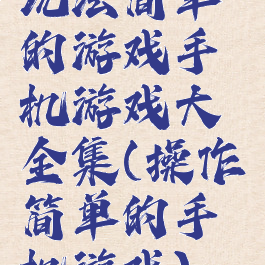 玩法简单
的游戏手
机游戏大
全集(操作
简单的手
机游戏)